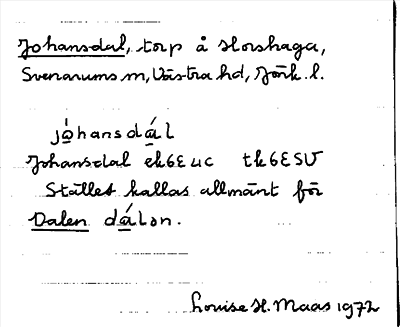 Johansdal, torp å Horshaga,
Svenarums sn, Västra hd, Jönk. l.
jo̲hansda̲l
Johansdal ek6E4c tk6ESV
Stället kallas allmänt för
Dalen dálən.
Louise H. Maas 1972